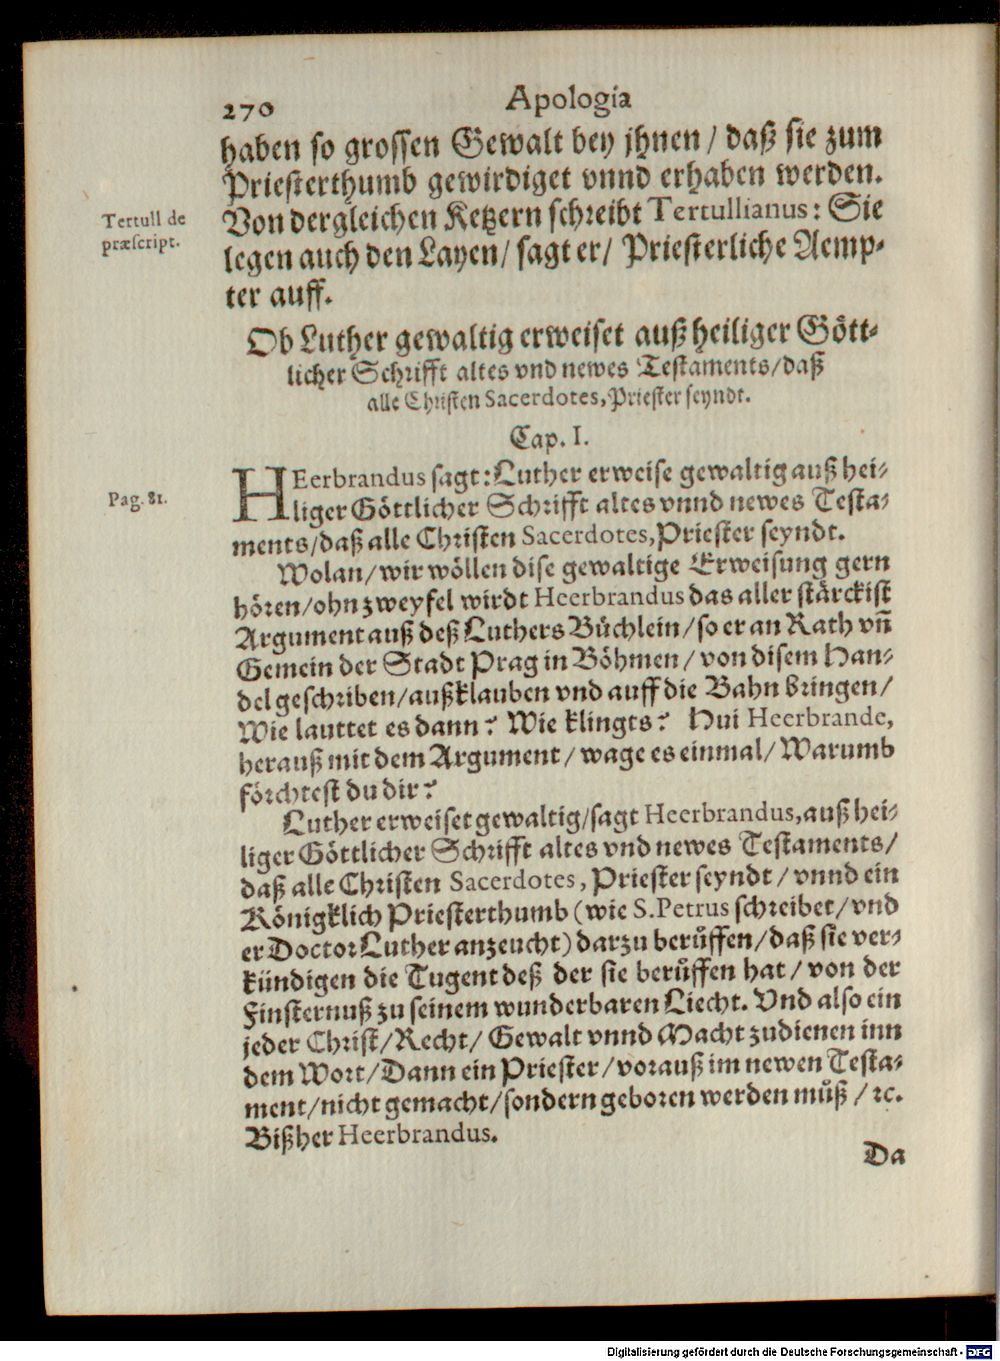 270 Apologia
haben so grossen Gewalt bey jhnen / daß sie zum
Priesterthumb gewirdiget vnnd erhaben werden.
Tertull de
præscript.
Von dergleichen Ketzern schreibt Tertullianus: Sie
legen auch den Layen / sagt er / Priesterliche Aemp-
ter auff.
Ob Luther gewaltig erweiset auß heiliger Gött-
licher Schrifft altes vnd newes Testaments / daß
alle Christen Sacerdotes, Priester seyndt.
Cap. I.
Pag. 81.
HEerbrandus sagt: Luther erweise gewaltig auß hei-
liger Göttlicher Schrifft altes vnnd newes Testa-
ments / daß alle Christen Sacerdotes, Priester seyndt.
Wolan / wir wöllen dise gewaltige Erweisung gern
hören / ohn zweyfel wirdt Heerbrandus das aller stärckist
Argument auß deß Luthers Bůchlein / so er an Rath vñ
Gemein der Stadt Prag in Böhmen / von disem Han-
del geschriben / außklauben vnd auff die Bahn bringen /
Wie lauttet es dann? Wie klingts? Hui Heerbrande,
herauß mit dem Argument / wage es einmal / Warumb
förchtest du dir?
Luther erweiset gewaltig / sagt Heerbrandus, auß hei-
liger Göttlicher Schrifft altes vnd newes Testaments /
daß alle Christen Sacerdotes, Priester seyndt / vnnd ein
Königklich Priesterthumb (wie S. Petrus schreibet / vnd
er Doctor Luther anzeucht) darzu berůffen / daß sie ver-
kündigen die Tugent deß der sie berůffen hat / von der
Finsternuß zu seinem wunderbaren Liecht. Vnd also ein
jeder Christ / Recht / Gewalt vnnd Macht zudienen inn
dem Wort / Dann ein Priester / vorauß im newen Testa-
ment / nicht gemacht / sondern geboren werden můß / ꝛc.
Bißher Heerbrandus.
Da
Digitalisierung gefördert durch die Deutsche Forschungsgemeinschaft - DFG